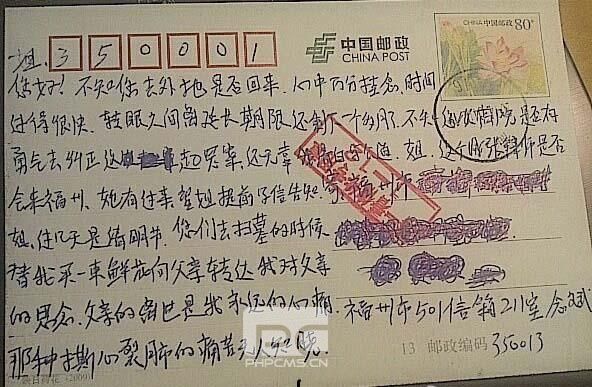 350001
中国邮政
CHINA POST
中国邮政 CHINA
80分
姐:
您好!不知您去外地是否回来,心中万分挂念,时间
过得很快,转眼之间离延长期限还剩一个多月,不知 是否有
勇气去纠正 起冤案,还无辜 清白与公道,姐, 张律师是否
会来福州,如有过来望姐提前写信告知,
福州市
姐,过几天是清明节,您们去扫墓的时候
替我买一束鲜花向父亲转达我对父亲
的思念,父亲的离世是我永远的心痛,
那种撕心裂肺的痛苦无人知晓
福州市501信箱211室念斌
13 邮政编码 350013
(2009)
PHPCMS.CN